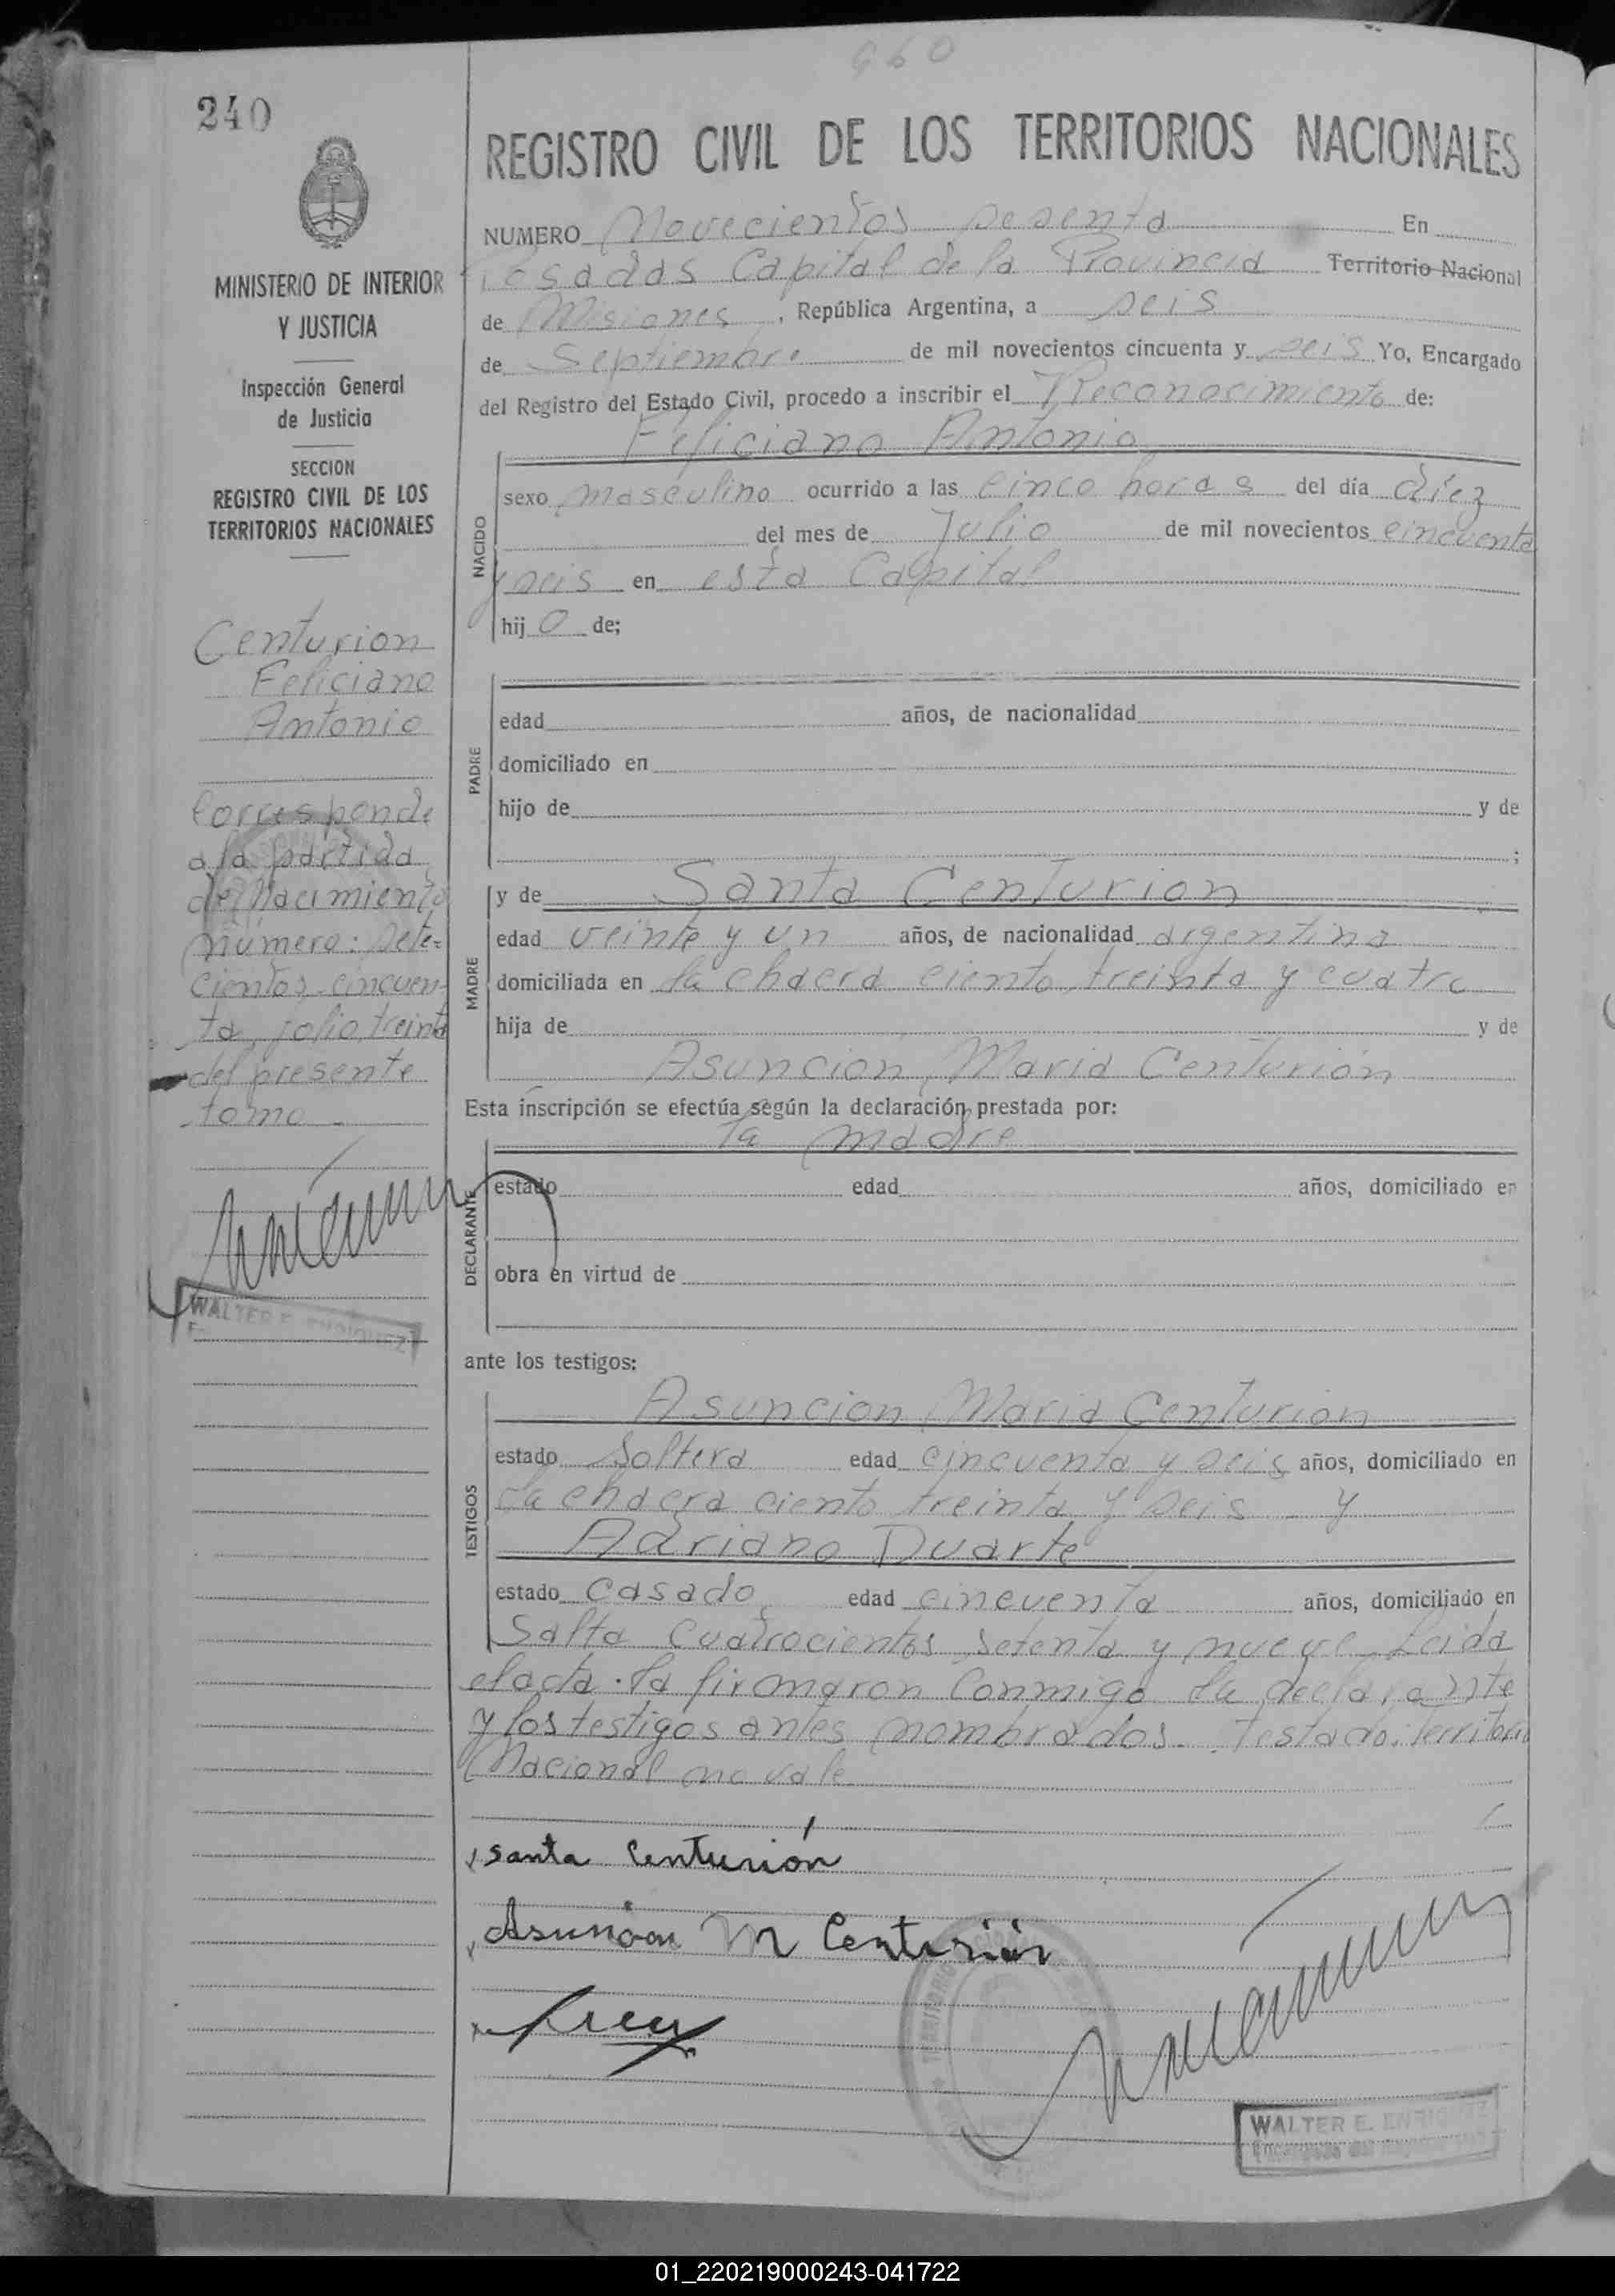 960
240
REGISTRO CIVIL DE LOS TERRITORIOS NACIONALES
MINISTERIO DE INTERIOR
Y JUSTICIA
Inspección General
de Justicia
SECCION
REGISTRO CIVIL DE LOS
TERRITORIOS NACIONALES
Centurion
Feliciano
Antonio
Corresponde
a la partida
de Nacimiento
número: Sete=
cientos cincuen-
ta, folio treinta
del presente
tomo
WALTER E. ENRIQUEZ
NUMERO Novecientos sesenta En
Posadas Capital de la Provincia Territorio Nacional
de Misiones, República Argentina, a seis
de Septiembre de mil novecientos cincuenta y seis Yo, Encargado
del Registro del Estado Civil, procedo a inscribir el Reconocimiento de:
Feliciano Antonio
NACIDO
sexo masculino ocurrido a las cinco horas del día diez
del mes de Julio de mil novecientos cincuenta
y seis en esta Capital
hijo de;
PADRE
edad años, de nacionalidad
domiciliado en
hijo de y de
;
MADRE
y de Santa Centurion
edad veinte y un años, de nacionalidad argentina
domiciliada en la chacra ciento treinta y cuatro
hija de y de
Asuncion Maria Centurión
Esta inscripción se efectúa según la declaración prestada por:
la madre
DECLARANTE
estado edad años, domiciliado en
obra en virtud de
ante los testigos:
TESTIGOS
Asuncion Maria Centurion
estado Soltera edad cincuenta y seis años, domiciliado en
la chacra ciento treinta y seis y
Adriano Duarte
estado casado edad cincuenta años, domiciliado en
Salta cuatrocientos setenta y nueve Leida
el acta la firmaron conmigo la declarante
y los testigos antes nombrados. Testado: Territorio
Nacional no vale
Santa Centurión
Asunción M Centurión
WALTER E. ENRIQUEZ
01_220219000243-041722